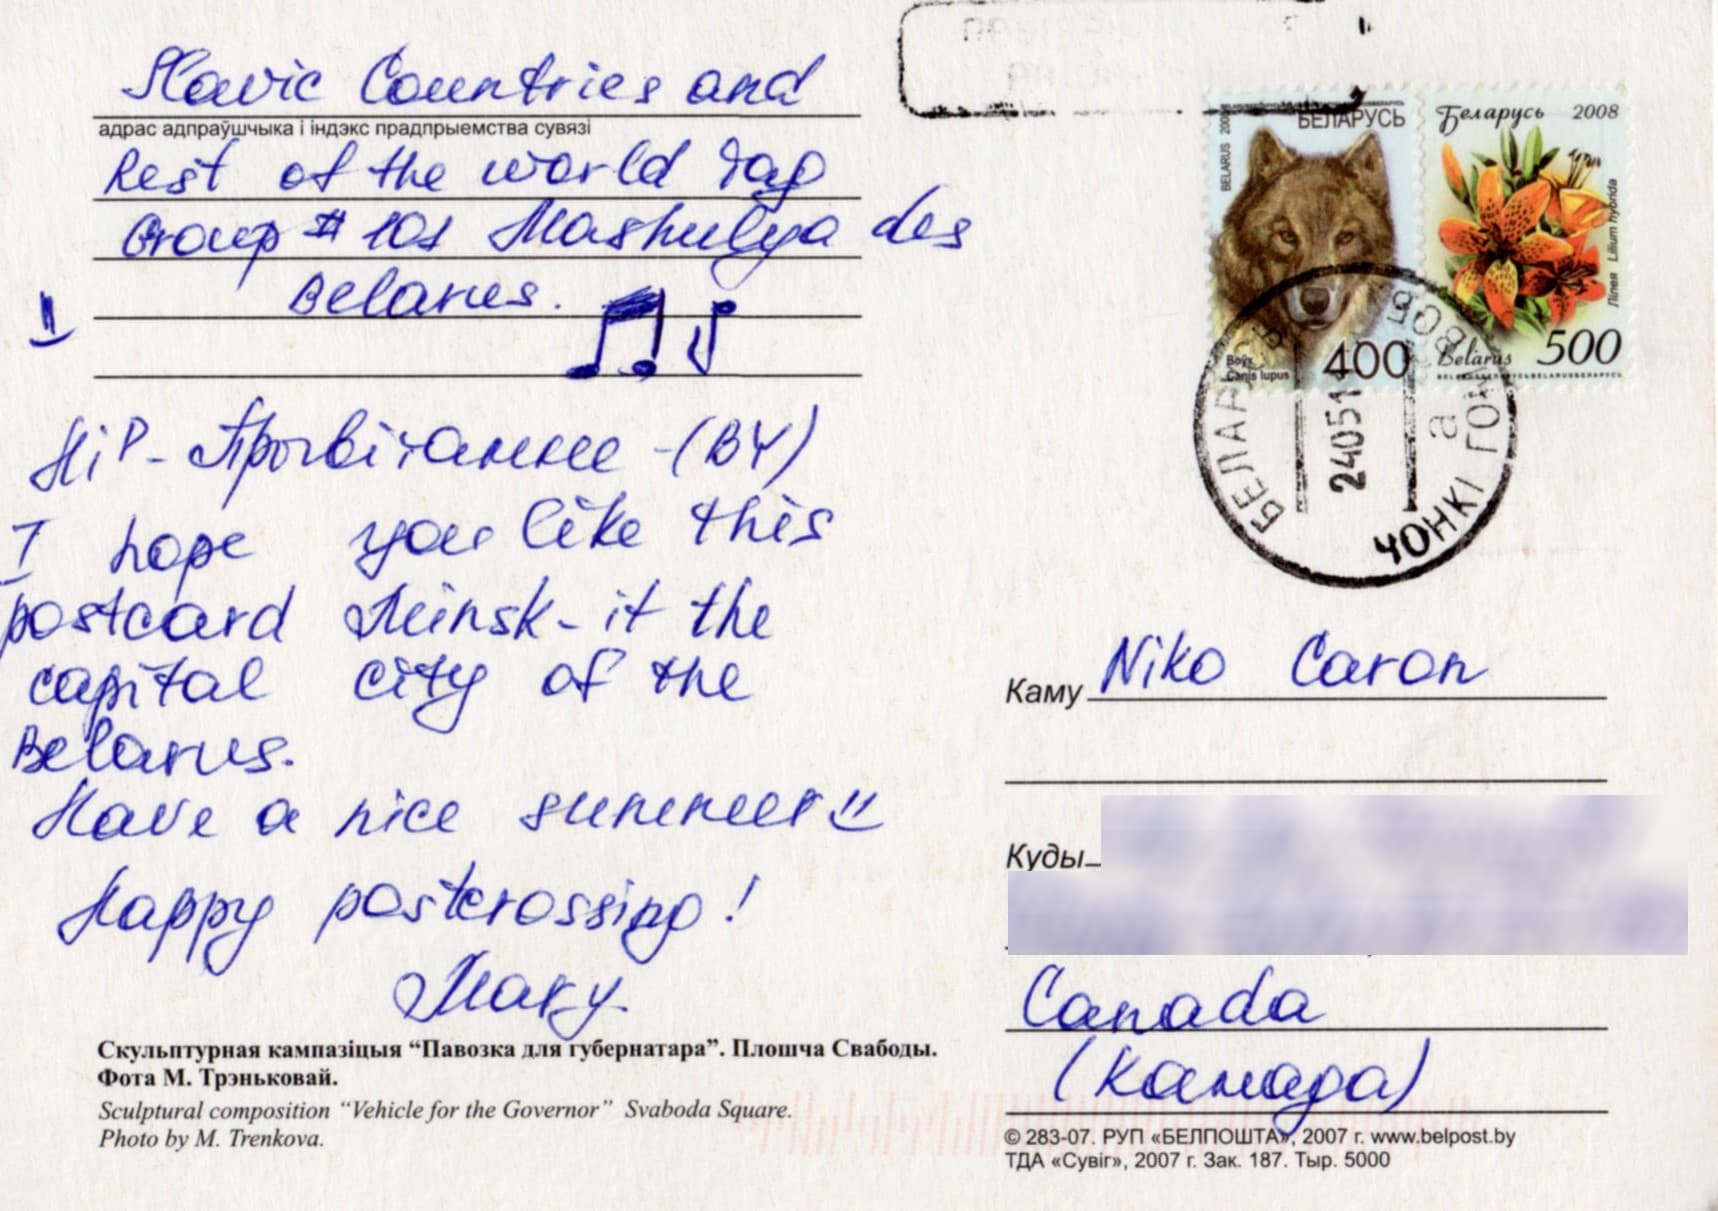 Slavic Countries and
адрас адпраўшчыка і індэкс прадпрыемства сувязі
Rest of the world tag
Group # 101 Mashulya des
Belarus.
Hi - (BY)
I hope you like this
postcard Minsk - it the
capital city of the
Belarus.
Have a nice summer
Happy postcrossing!
Mary.
Скульптурная кампазіцыя “Павозка для губернатара”. Плошча Свабоды.
Фота М. Трэньковай.
Sculptural composition “Vehicle for the Governor” Svaboda Square.
Photo by M. Trenkova.
БЕЛАРУСЬ
BELARUS
Воўк
Canis lupus
400
Беларусь 2008
Лілея Lilium hybrida
Belarus 500
БЕЛАРУСЬ
24051
а
Каму Niko Caron
Куды
Canada
(Канада)
© 283-07. РУП «БЕЛПОШТА», 2007 г. www.belpost.by
ТДА «Сувіг», 2007 г. Зак. 187. Тыр. 5000